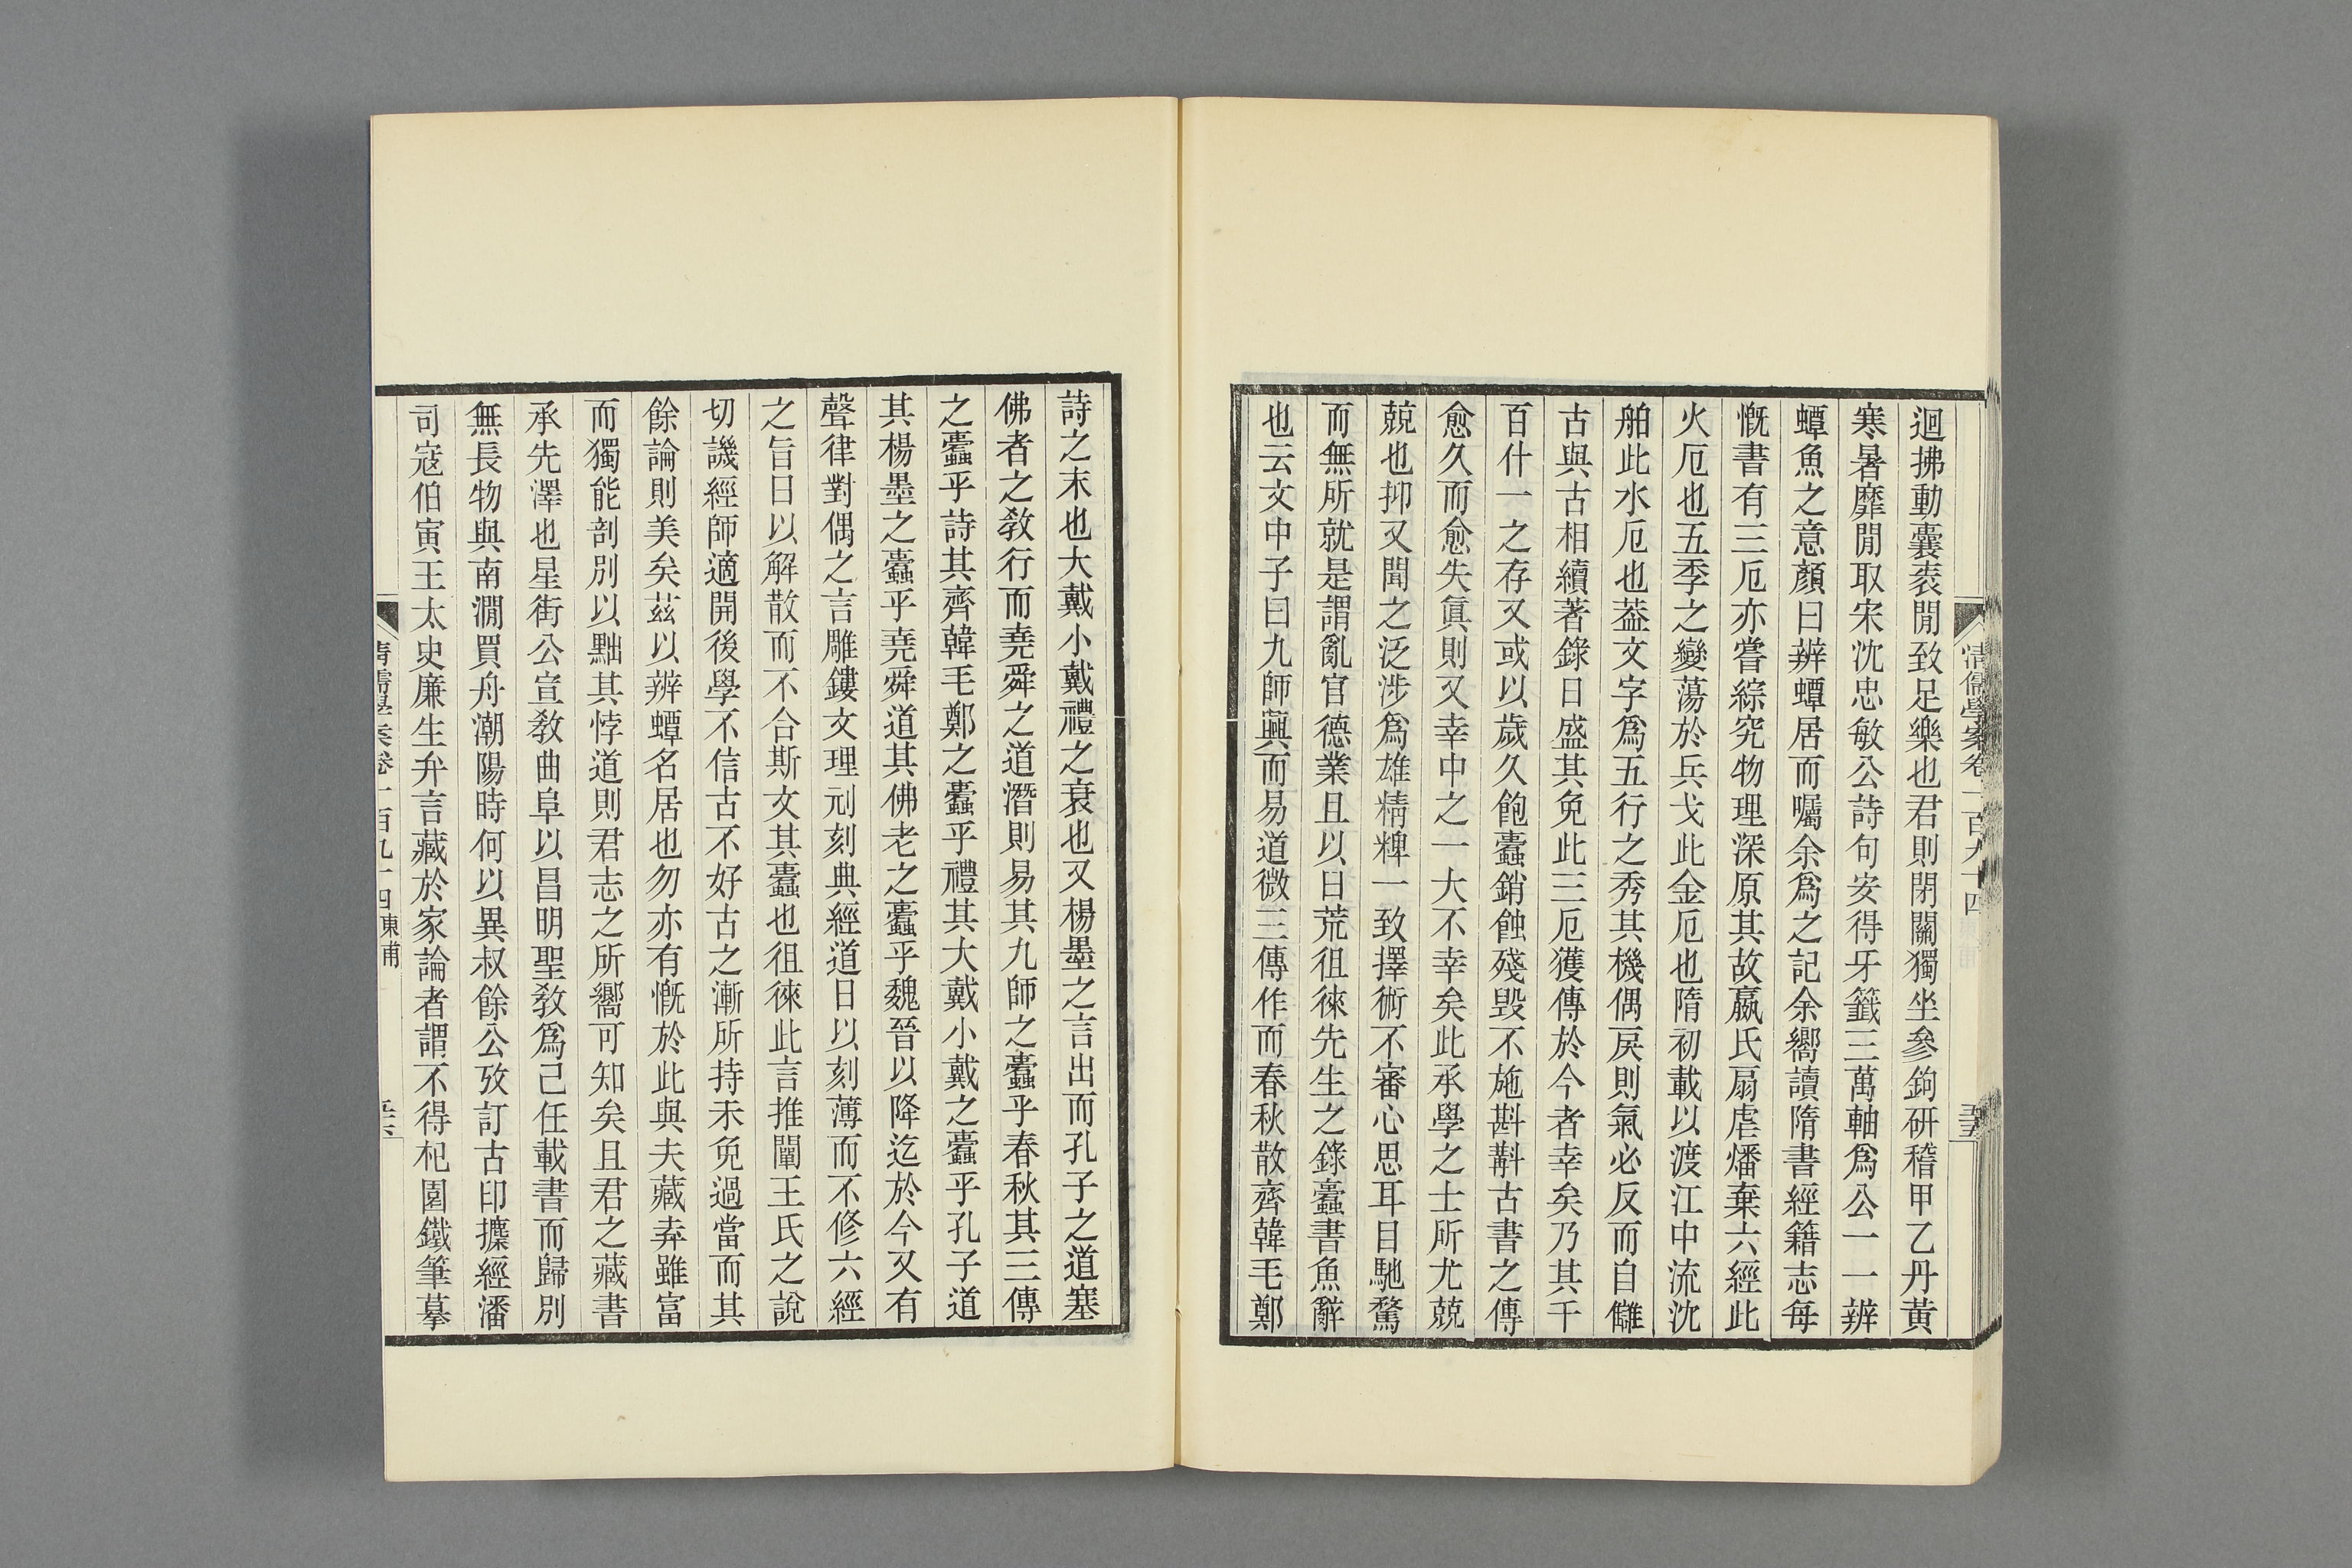 清儒學案卷一百九十四
迴拂動囊袠閒致足樂也君則閉關獨坐參鉤研稽甲乙丹黃
寒暑靡閒取宋沈忠敏公詩句安得牙籤三萬軸爲公一一辨
蟫魚之意顏曰辨蟫居而囑余爲之記余嚮讀隋書經籍志每
慨書有三厄亦嘗綜究物理深原其故嬴氏扇虐燔棄六經此
火厄也五季之變蕩於兵戈此金厄也隋初載以渡江中流沈
舶此水厄也葢文字爲五行之秀其機偶戾則氣必反而自讎
古與古相續著錄日盛其免此三厄獲傳於今者幸矣乃其千
百什一之存又或以歲久飽蠹銷蝕殘毀不施斟斠古書之傳
愈久而愈失眞則又幸中之一大不幸矣此承學之士所尤兢
兢也抑又聞之泛涉爲雄精粺一致擇術不審心思耳目馳騖
而無所就是謂亂官德業且以日荒徂徠先生之錄蠹書魚辭
也云文中子曰九師興而易道微三傳作而春秋散齊韓毛鄭
詩之末也大戴小戴禮之衰也又楊墨之言出而孔子之道塞
佛者之敎行而堯舜之道潛則易其九師之蠹乎春秋其三傳
之蠹乎詩其齊韓毛鄭之蠹乎禮其大戴小戴之蠹乎孔子道
其楊墨之蠹乎堯舜道其佛老之蠹乎魏晉以降迄於今又有
聲律對偶之言雕鏤文理刓刻典經道日以刻薄而不修六經
之旨日以解散而不合斯文其蠹也徂徠此言推闡王氏之說
切譏經師適開後學不信古不好古之漸所持未免過當而其
餘論則美矣茲以辨蟫名居也勿亦有慨於此與夫藏弆雖富
而獨能剖別以黜其悖道則君志之所嚮可知矣且君之藏書
承先澤也星街公宣敎曲阜以昌明聖敎爲己任載書而歸別
無長物與南澗買舟潮陽時何以異叔餘公攷訂古印攗經潘
司寇伯寅王太史廉生弁言藏於家論者謂不得杞園鐵筆摹
清儒學案卷一百九十四 東甫